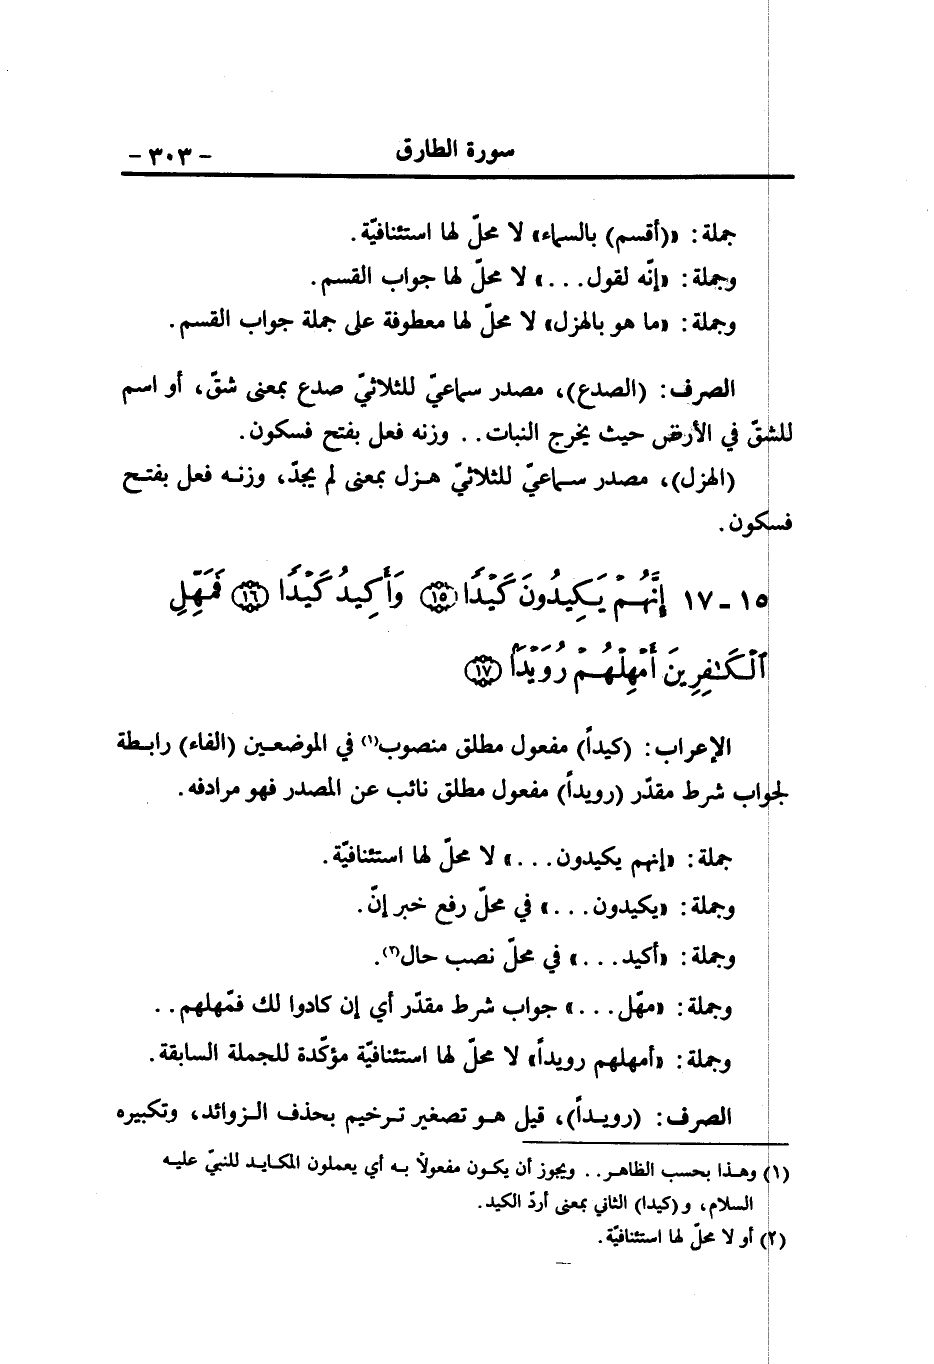 سورة الطارق - ٣٠٣ -
جملة: «(أقسم) بالسماء» لا محلّ لها استئنافيّة.
وجملة: «إنّه لقول...» لا محلّ لها جواب القسم.
وجملة: «ما هو بالهزل» لا محلّ لها معطوفة على جملة جواب القسم.
الصرف: (الصدع)، مصدر سماعيّ للثلاثيّ صدع بمعنى شقّ، أو اسم
للشقّ في الأرض حيث يخرج النبات.. وزنه فعل بفتح فسكون.
(الهزل)، مصدر سماعيّ للثلاثيّ هزل بمعنى لم يجدّ، وزنه فعل بفتح
فسكون.
١٥ - ١٧ إِنَّهُمْ يَكِيدُونَ كَيْدًا ١٥ وَأَكِيدُ كَيْدًا ١٦ فَمَهِّلِ
ٱلْكَٰفِرِينَ أَمْهِلْهُمْ رُوَيْدًا ١٧
الإعراب: (كيداً) مفعول مطلق منصوب(١) في الموضعين (الفاء) رابطة
لجواب شرط مقدّر (رويداً) مفعول مطلق نائب عن المصدر فهو مرادفه.
جملة: «إنهم يكيدون...» لا محلّ لها استئنافيّة.
وجملة: «يكيدون...» في محلّ رفع خبر إنّ.
وجملة: «أكيد...» في محلّ نصب حال(٢).
وجملة: «مهّل...» جواب شرط مقدّر أي إن كادوا لك فمّهلهم..
وجملة: «أمهلهم رويداً» لا محلّ لها استئنافيّة مؤكّدة للجملة السابقة.
الصرف: (رويداً)، قيل هو تصغير ترخيم بحذف الزوائد، وتكبيره
(١) وهذا بحسب الظاهر.. ويجوز أن يكون مفعولاً به أي يعملون المكايد للنبيّ عليه
السلام، و(كيدا) الثاني بمعنى أردّ الكيد.
(٢) أو لا محلّ لها استئنافيّة.